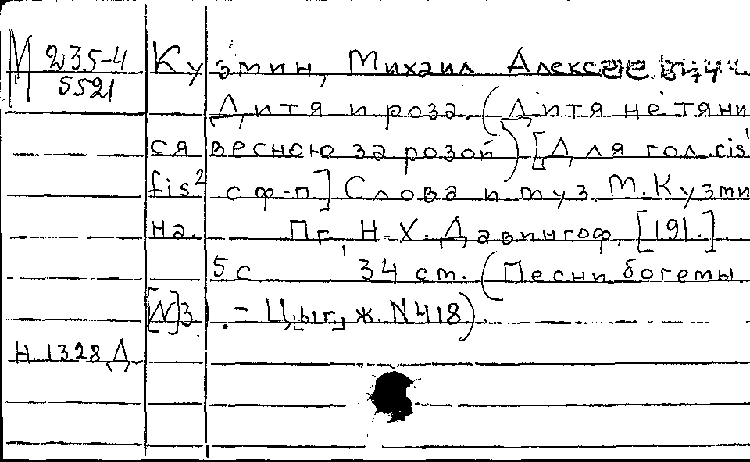 М 235-4
5521
Кузмин, Михаил Алексеевич
Дитя и роза. (Дитя не тяни
ся весною за розой) [Для гол. cis¹
fis² с ф-п] Слова и муз. М. Кузми
на. Пг., Н. Х. Давингоф, [191.]
5 с 34 см. (Песни богемы.
[N]3. - Цыг. ж. N 418).
Н 1328 Д